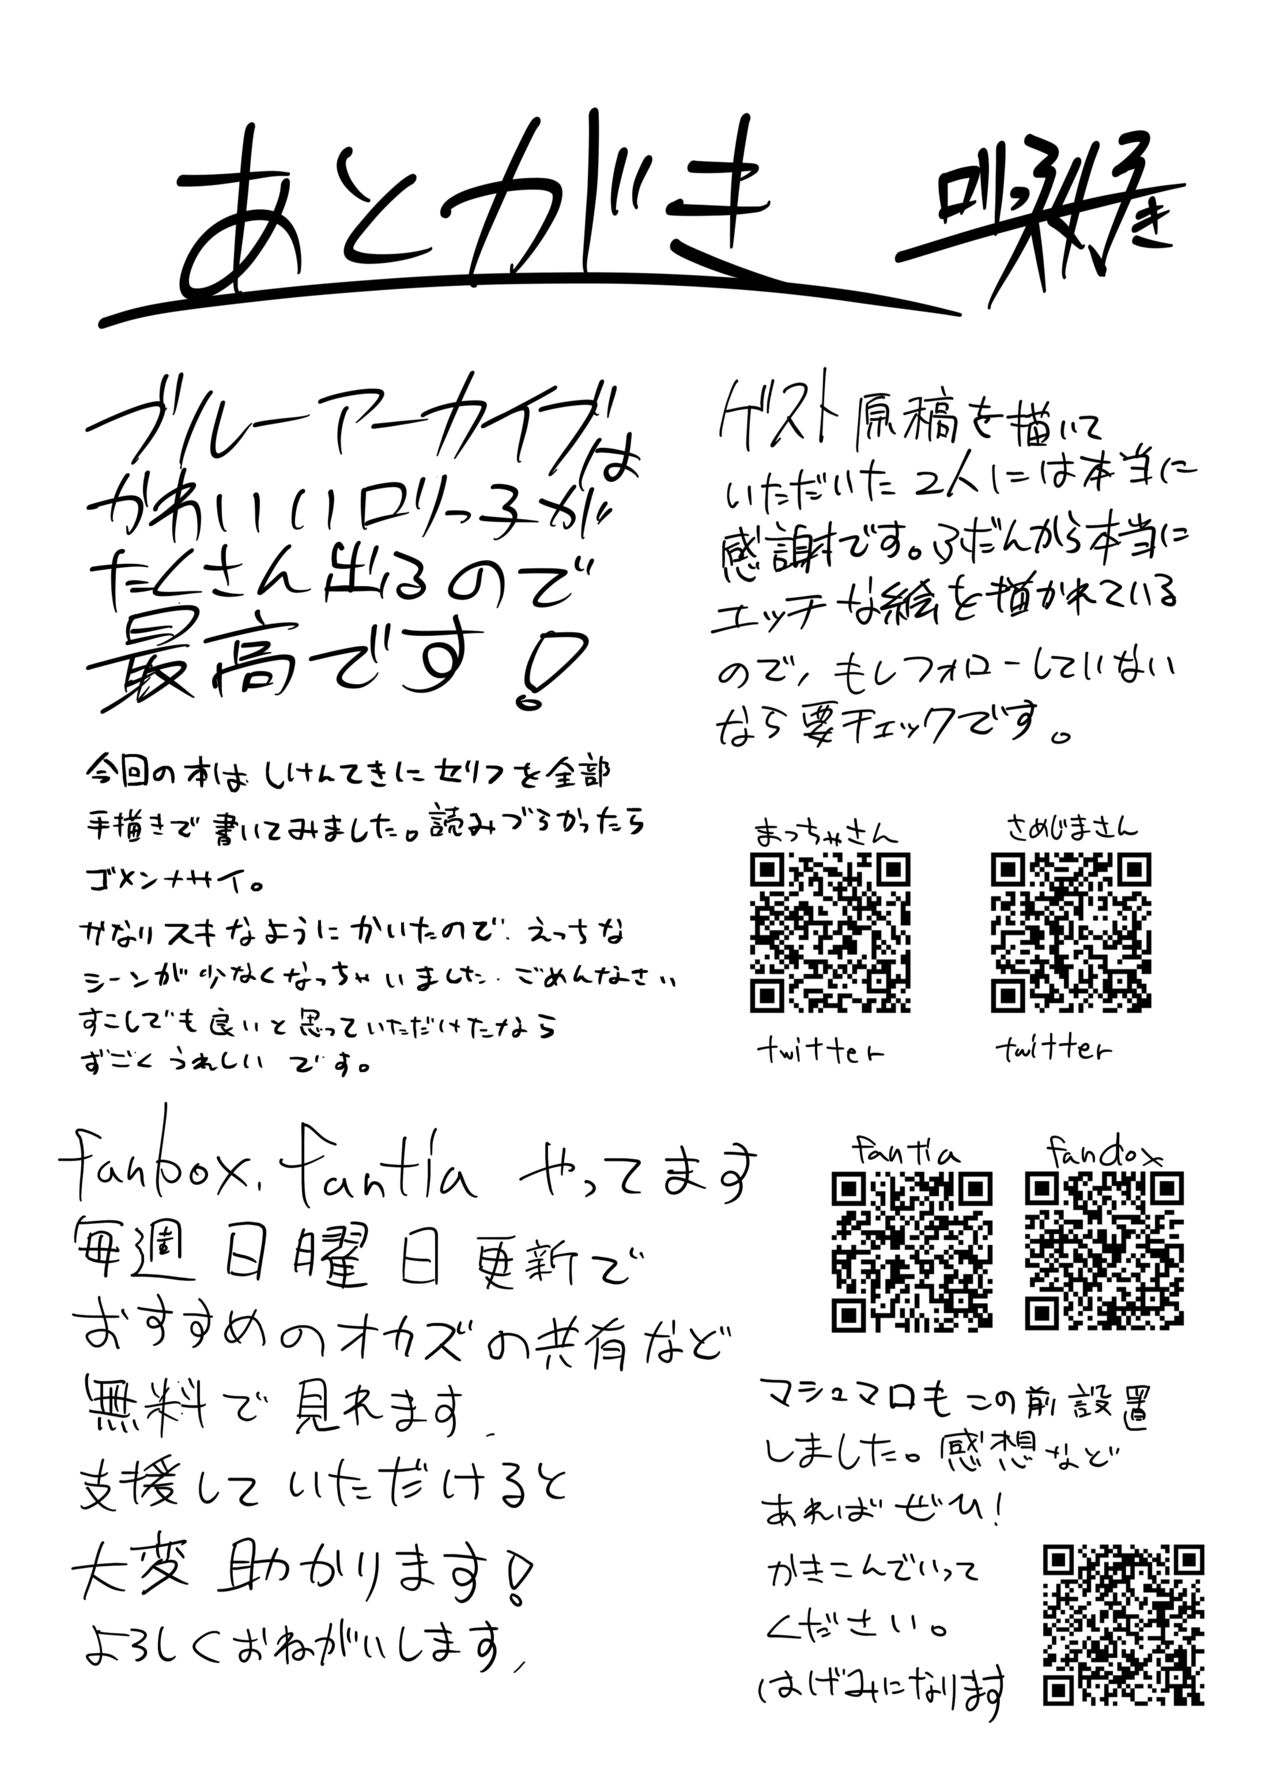 あとがき
ブルーアーカイブは
かわいいロリっ子が
たくさん出るので
最高です!
今回の本はしけんてきにセリフを全部
手描きで書いてみました。読みづらかったら
ゴメンナサイ。
かなりスキなようにかいたので、えっちな
シーンが少なくなっちゃいました. ごめんなさい
すこしでも良いと思っていただけたなら
すごくうれしいです。
ゲスト原稿を描いて
いただいた2人には本当に
感謝です。ふだんから本当に
エッチな絵を描かれている
ので、もしフォローしていない
なら要チェックです。
まっちゃさん
さめじまさん
twitter
twitter
fanbox, fantia やってます
毎週日曜日更新で
おすすめのオカズの共有など
無料で見れます、
支援していただけると
大変助かります!
よろしくおねがいします、
fantia
fanbox
マシュマロもこの前設置
しました。感想など
あればぜひ!
かきこんでいって
ください。
はげみになります